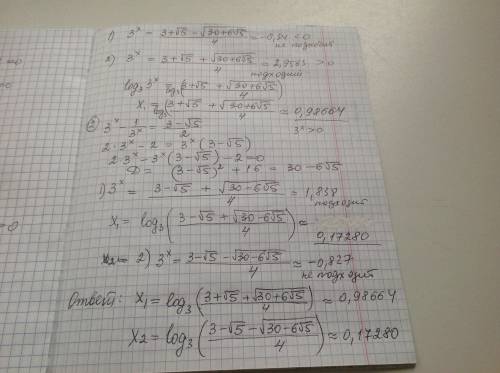 1) 3^x = (3+√5 − √(30+6√5))/4 = −0,34 < 0
не подходит
2) 3^x = (3+√5 + √(30+6√5))/4 = 2,9563 > 0
подходит
log₃ 3^x = log₃ (3+√5 + √(30+6√5))
x₁ = log₃ (3+√5 + √(30+6√5))/4 ≈ 0,98664
3^x > 0
② 3^x − 1/3^x = (3−√5)/2
2·3^x − 2 = 3^x (3−√5)
2·3^x − 3^x (3−√5) − 2 = 0
D = (3−√5)² + 16 = 30−6√5
1) 3^x = (3−√5 + √(30−6√5))/4 = 1,838
подходит
x₁ = log₃ ((3−√5 + √(30−6√5))/4) ≈ 0,17280
x₂ = 2) 3^x = (3−√5 − √(30−6√5))/4 ≈ −0,827
не подходит
Ответ: x₁ = log₃ ((3+√5 + √(30+6√5))/4) ≈ 0,98664
x2 = log₃ ((3−√5 − √(30−6√5))/4) ≈ 0,17280